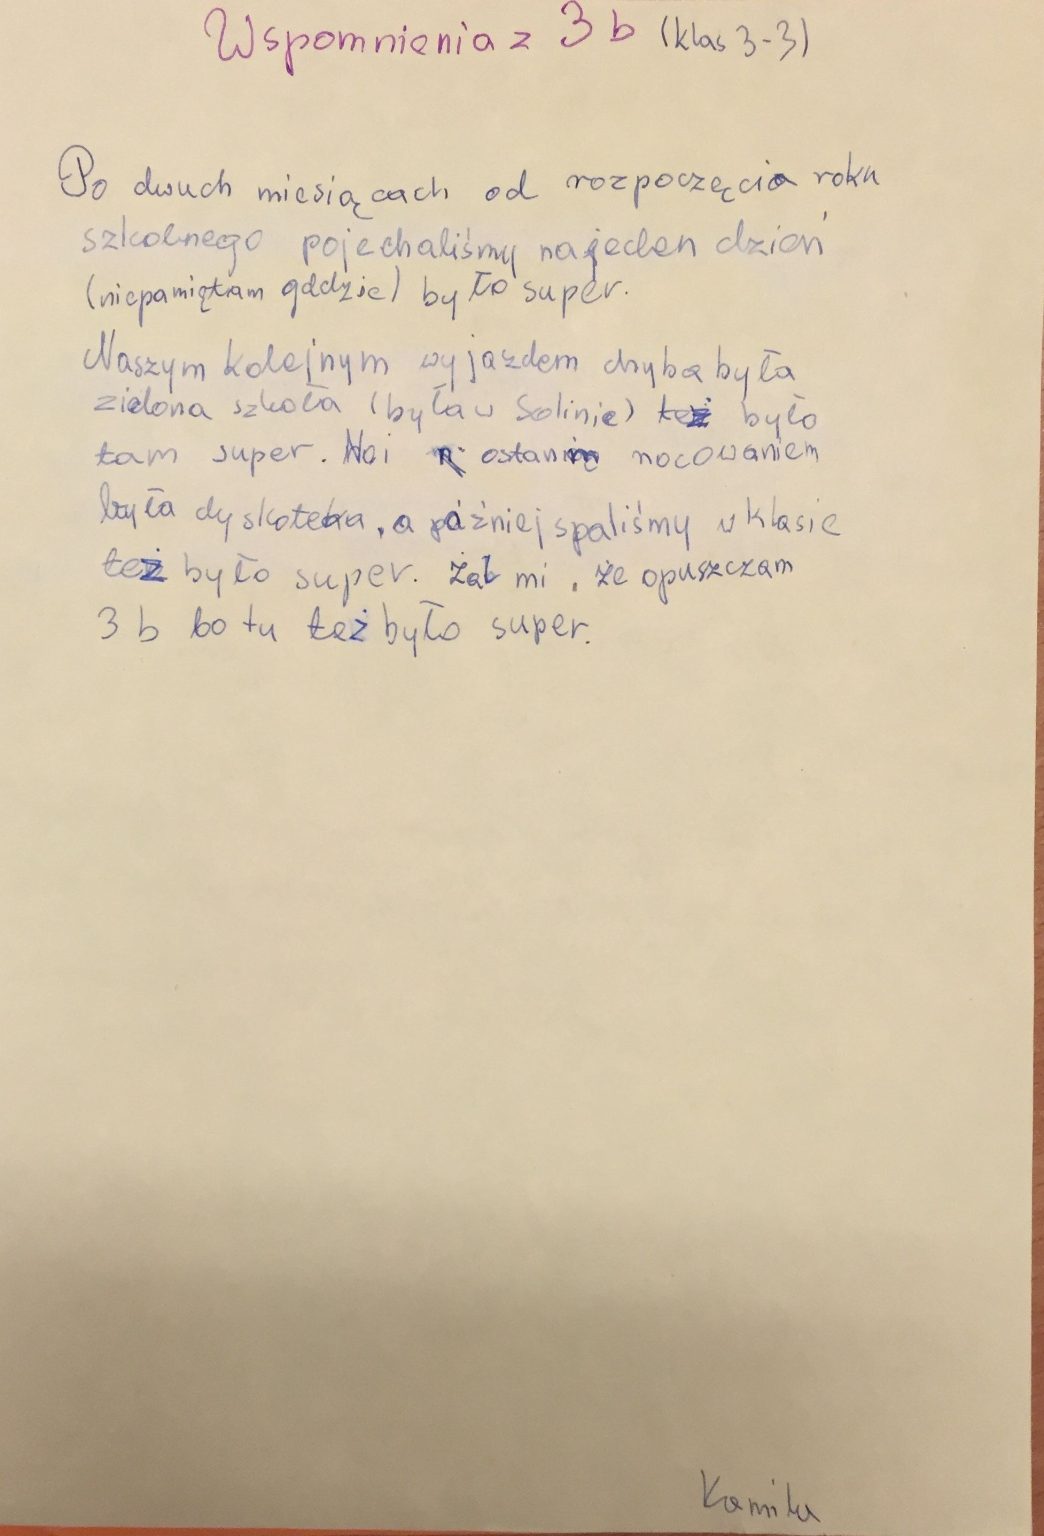 Wspomnienia z 3 b (klas 3-3)
Po dwuch miesiącach od rozpoczęcia roku
szkolnego pojechaliśmy na jeden dzień
(niepamiętam gddzie) było super.
Naszym kolejnym wyjazdem chyba była
zielona szkoła (była w Solinie) też było
tam super. Noi nocowaniem
była dyskoteka, a później spaliśmy w klasie
też było super. Żal mi, że opuszczam
3 b bo tu też było super.
Kamila